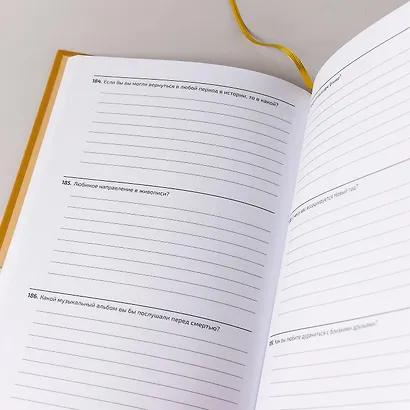 184. Если бы вы могли вернуться в любой период в истории, то в какой?
185. Любимое направление в живописи?
186. Какой музыкальный альбом вы бы послушали перед смертью?
ассоциируется Новый год?
Как вы любите дурачиться с близкими друзьями?